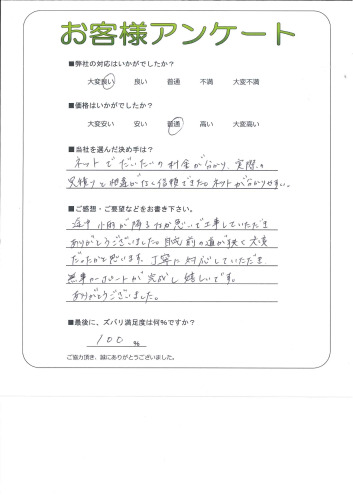 お客様アンケート
■弊社の対応はいかがでしたか？
大変良い 良い 普通 不満 大変不満
■価格はいかがでしたか？
大変安い 安い 普通 高い 大変高い
■当社を選んだ決め手は？
ネットでだいたいの料金が分かり、実際の
見積りと相違がなく信頼できた。ネットが分かりやすい。
■ご感想・ご要望などをお書き下さい。
途中小雨が降る中が思いで工事していただき
ありがとうございました。自宅前の道が狭く大変
だったかと思います。丁寧に対応していただき
無事カーポートが完成し嬉しいです。
ありがとうございました。
■最後に、ズバリ満足度は何%ですか？
100 %
ご協力頂き、誠にありがとうございました。